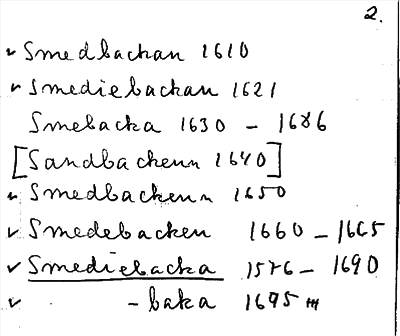 2.
✓ Smedbackan 1610
✓ Smediebackan 1621
Smebacka 1630 – 1686
[Sandbackenn 1640]
✓ Smedbackenn 1650
✓ Smedebacken 1660 – 1665
✓ Smediebacka 1576 – 1690
✓ – baka 1695 m